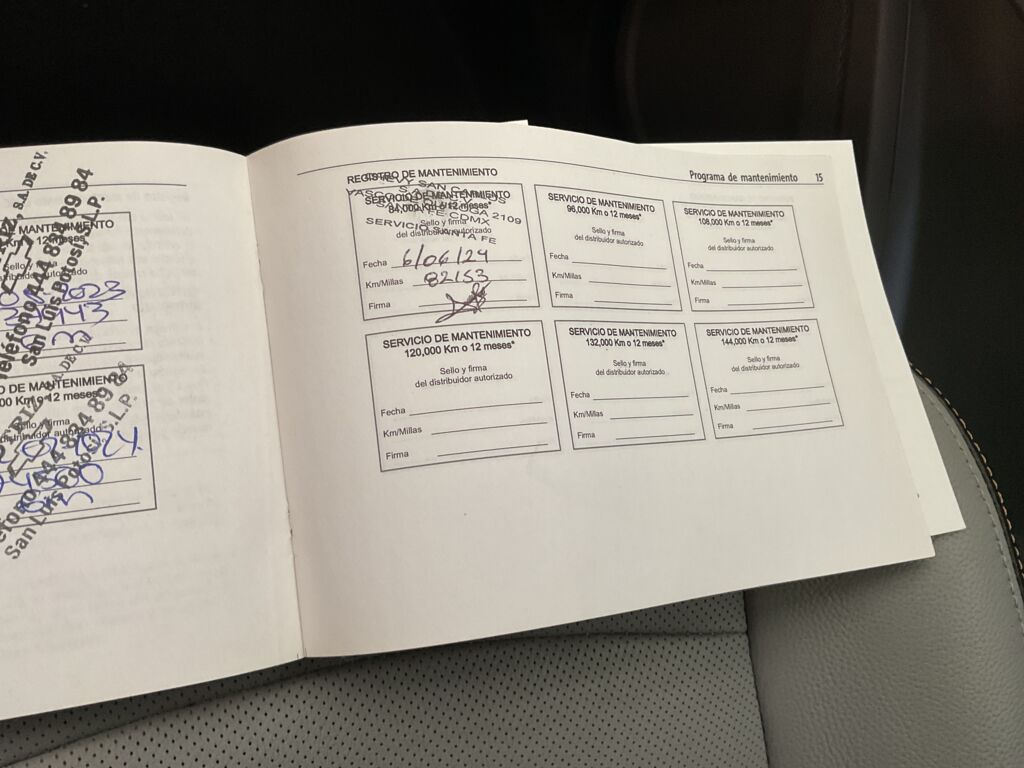 S.A. DE C.V.
Teléfono 444 834 89 84
San Luis Potosí, S.L.P.
MANTENIMIENTO
12 meses*
Sello y firma
2023
O DE MANTENIMIENTO
00 Km o 12 meses*
Sello y firma
distribuidor autorizado
2024
San Luis Potosí, S.L.P.
Programa de mantenimiento 15
REGISTRO DE MANTENIMIENTO
SERVICIO DE MANTENIMIENTO
84,000 Km o 12 meses*
Sello y firma
del distribuidor autorizado
VASCO 2109
SANTA FE CDMX
SERVICIO SANTA FE
Fecha 6/06/24
Km/Millas 82153
Firma
SERVICIO DE MANTENIMIENTO
96,000 Km o 12 meses*
Sello y firma
del distribuidor autorizado
Fecha
Km/Millas
Firma
SERVICIO DE MANTENIMIENTO
108,000 Km o 12 meses*
Sello y firma
del distribuidor autorizado
Fecha
Km/Millas
Firma
SERVICIO DE MANTENIMIENTO
120,000 Km o 12 meses*
Sello y firma
del distribuidor autorizado
Fecha
Km/Millas
Firma
SERVICIO DE MANTENIMIENTO
132,000 Km o 12 meses*
Sello y firma
del distribuidor autorizado
Fecha
Km/Millas
Firma
SERVICIO DE MANTENIMIENTO
144,000 Km o 12 meses*
Sello y firma
del distribuidor autorizado
Fecha
Km/Millas
Firma